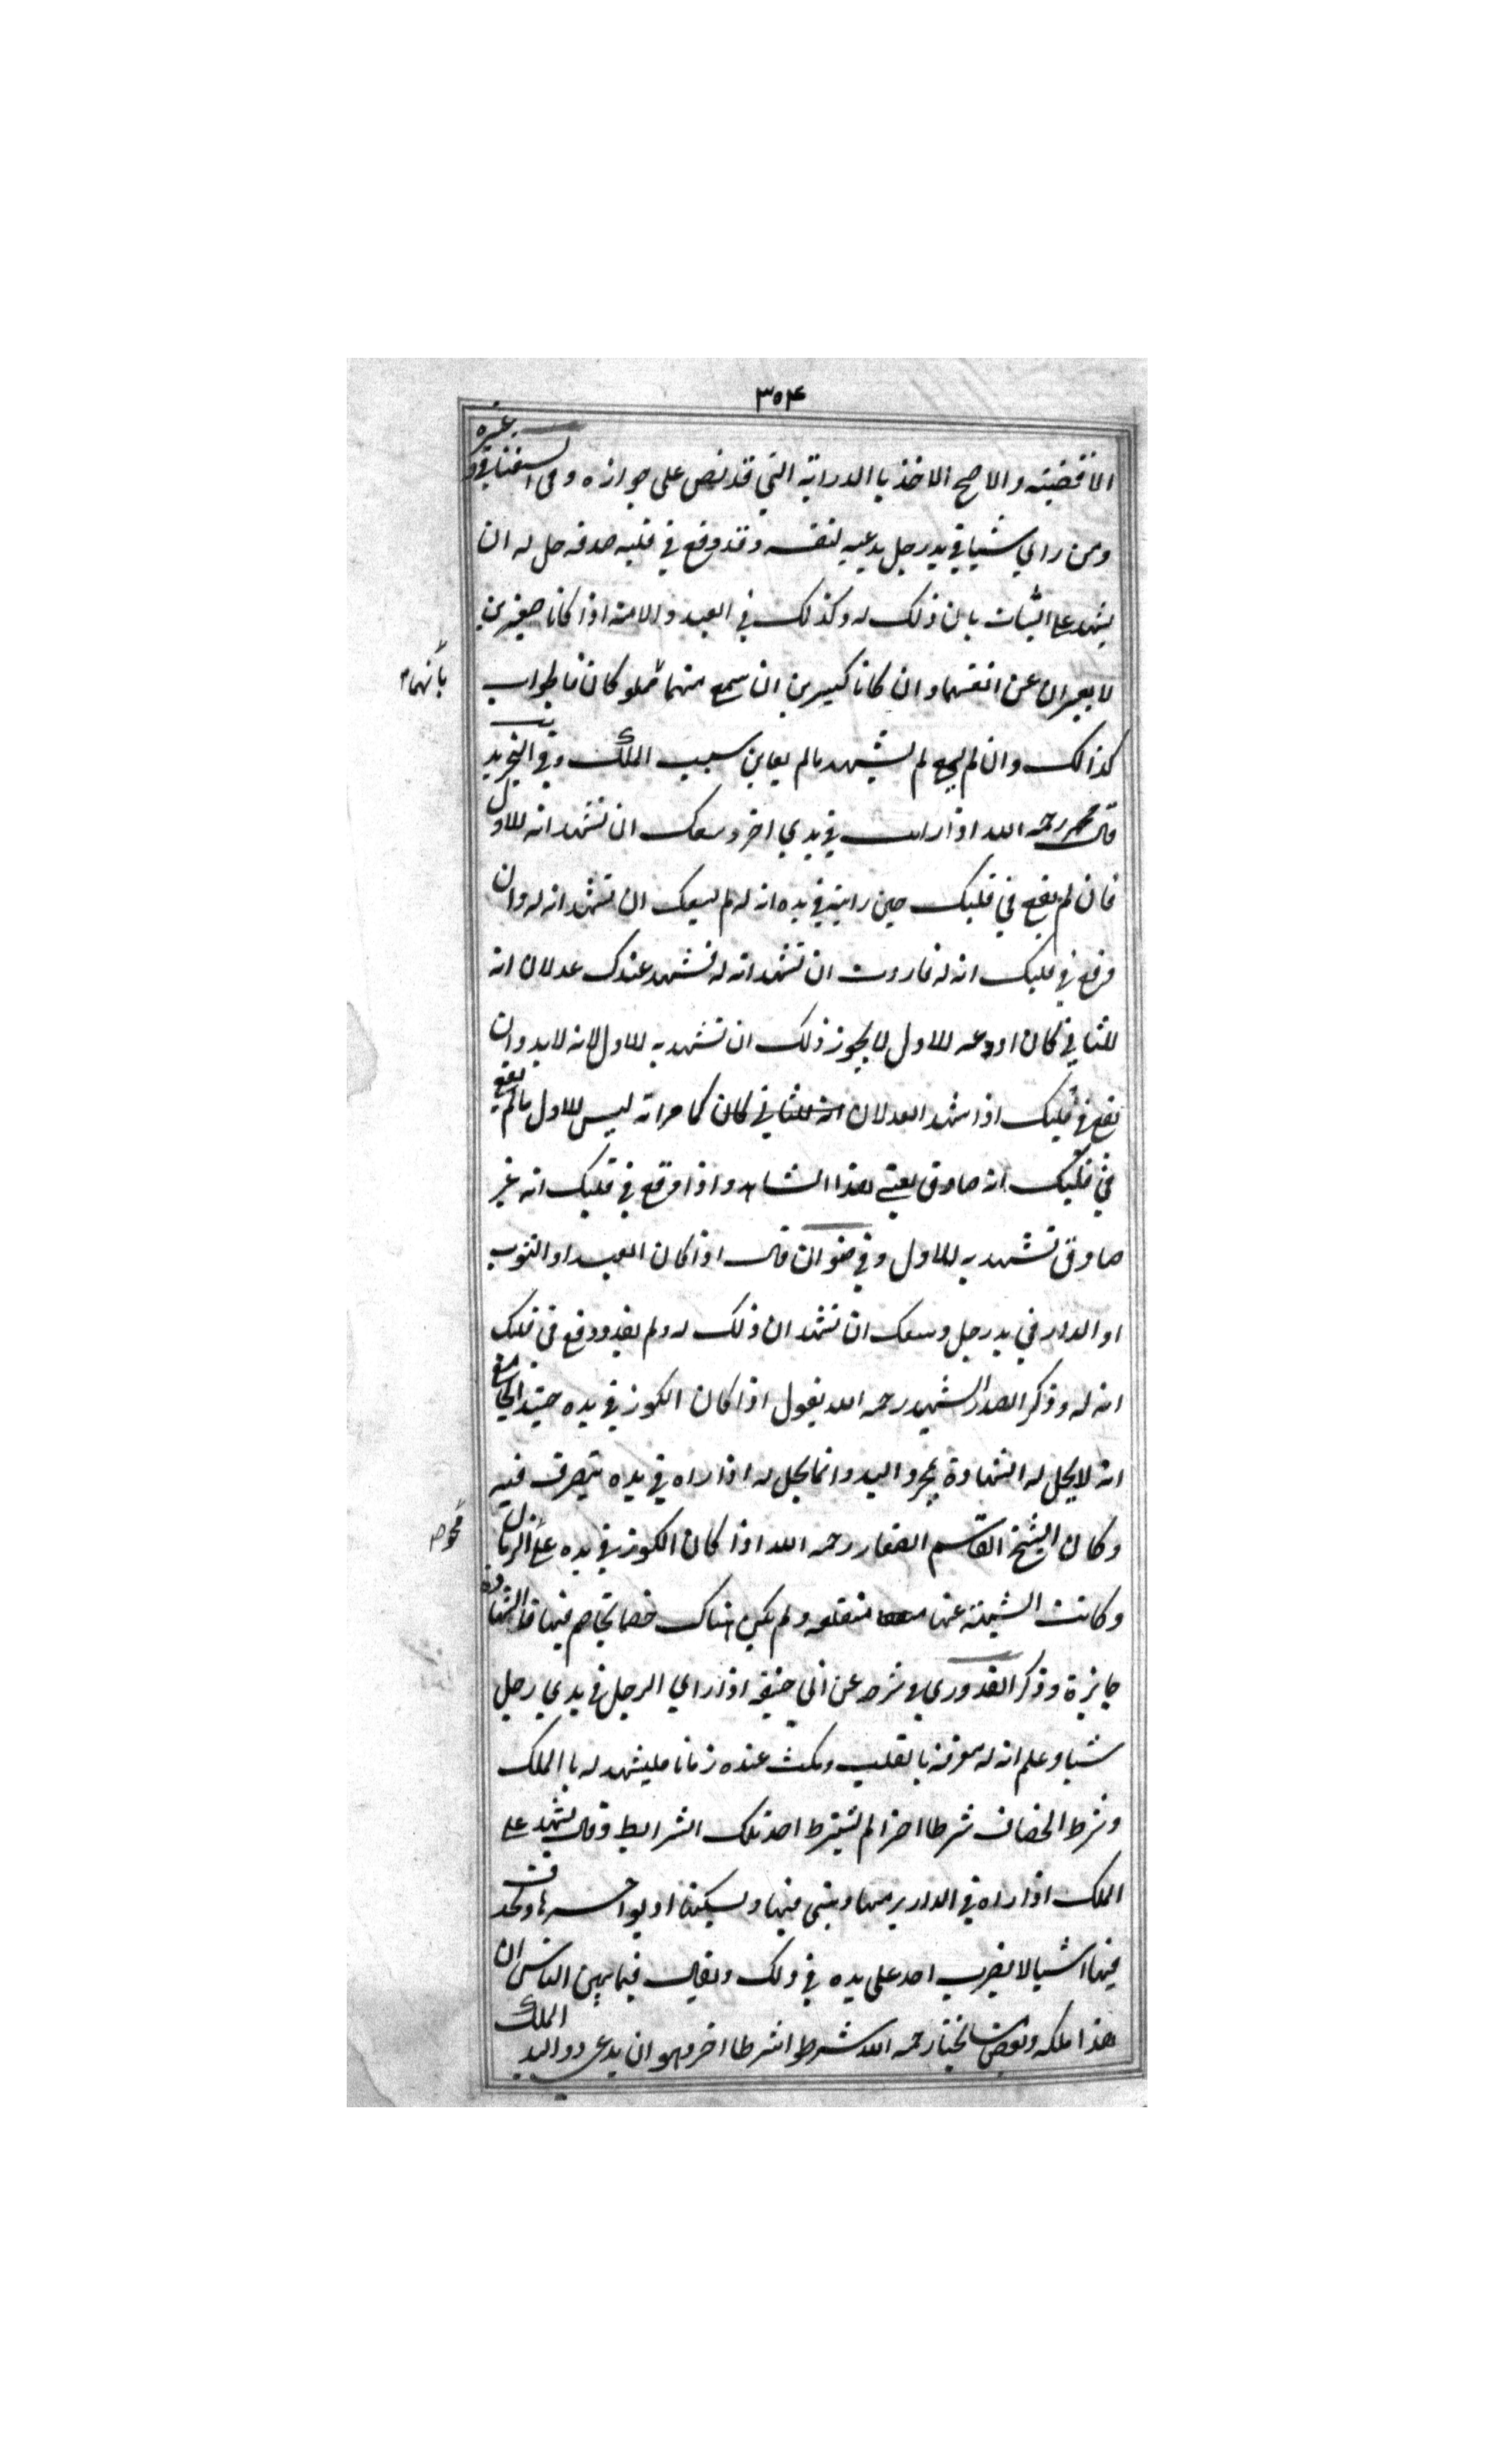 ٣٥٤
الاقضيته والاصح الاخذ باالدراية التي قد نص على جوازه وفى السغناقي و
غيره
ومن راي شيا في يد رجل يدعيه لنفسه وقد وقع في قلبه صدقه حل له ان
يشهد على الثبات بان ذلك له وكذلك في العبد والامة اذا كانا صغيرين
لا يعبران عن انفسهما وان كانا كبيرين ان سمع منهما مملوكان فاالجواب
بأنهما
كذالك وان لم يسمع لم يشهد مالم يعاين سبب الملك وفي التجريد
قال محمد رحمه الله اذا رايت في يدي اخر وسعك ان تشهد انه للاول
فان لم يقع في قلبك حين رايته في يده انه له لم يسعك ان تشهد انه له وان
وقع في قلبك انه له فاردت ان تشهد انه له فشهد عندك عدلان انه
للثاني كان اودعه للاول لا يجوز ذلك ان تشهد به للاول لانه لا بد وان
يقع في قلبك اذا شهد العدلان انه للثاني كان كما مر انه ليس للاول مالم يقع
في قلبك انه صادق يعني هذا الشاهد واذا وقع في قلبك انه غير
صادق تشهد به للاول وفي قال اذا كان العبد او الثوب
او الدار في يد رجل وسعك ان تشهد ان ذلك له ولم يقيد ووقع في قلبك
انه له وذكر الصدر الشهيد رحمه الله يقول اذا كان الكوز في يده الجامع
انه لا يحل له الشهادة بمجرد اليد وانما يحل له اذا راه في يده يتصرف فيه
وكان الشيخ القاسم الصفار رحمه الله اذا كان الكوز في يده على الزمان
وكانت عنها منقطعه ولم يكن هناك خصما يخاصم فيها فاالشهادة
جايزة وذكر القدوري في شرحه عن ابي حنيفه اذا راي الرجل في يدي رجل
شيا وعلم انه له معرفة باالقلب ومكث عنده زمانا فليشهد له باالملك
وشرط الخصاف شرطا اخرا لم يشترط احد تلك الشرايط وقال يشهد على
الملك اذا راه في الدار يرمها ويبنى فيها ويسكنها او يواجرها ويحدث
فيها اشيا لا يضرب احد على يده في ذلك ويقال فيما بين الناس ان
هذا ملكه وبعض مشايخنا رحمه الله شرطوا شرطا اخر وهو ان يدعى ذو اليد
الملك